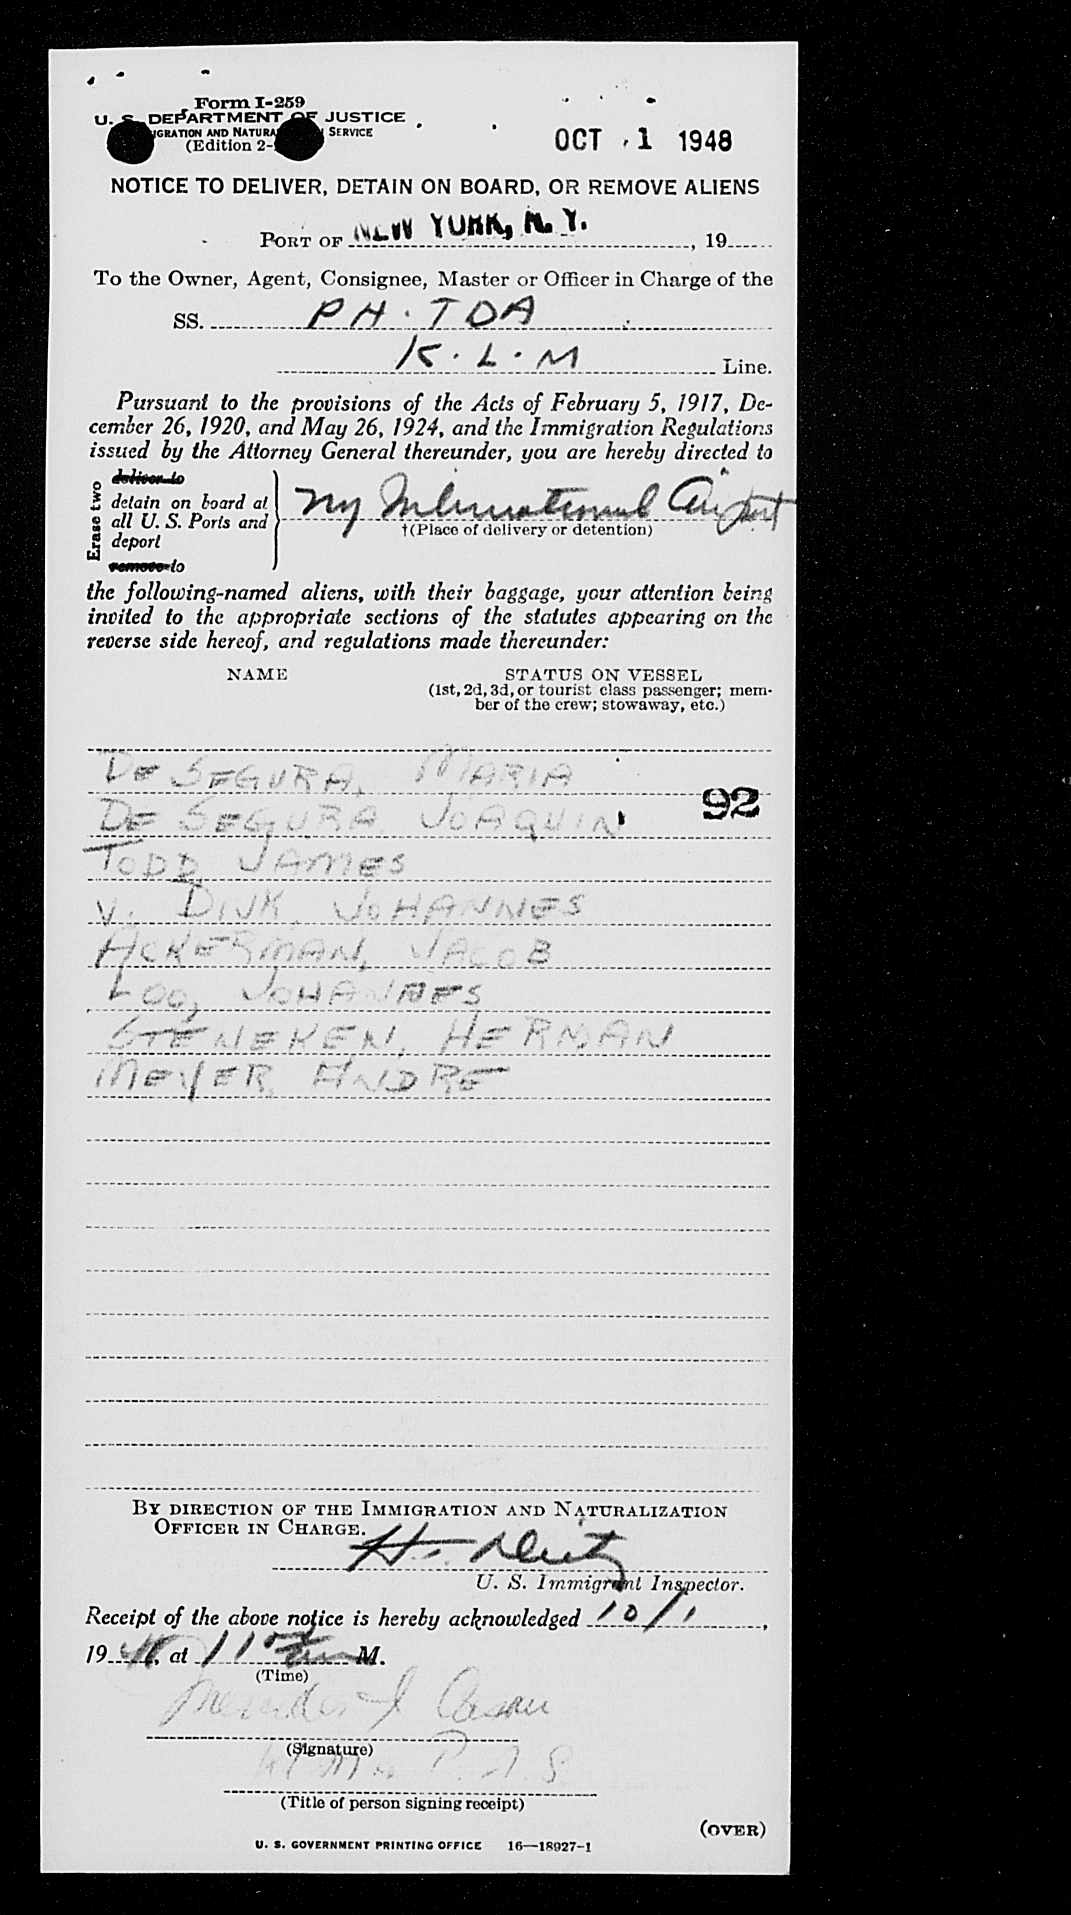 Form I-259
U. S. DEPARTMENT OF JUSTICE
SERVICE
(Edition 2-
OCT 1 1948
NOTICE TO DELIVER, DETAIN ON BOARD, OR REMOVE ALIENS
PORT OF NEW YORK, N. Y. , 19
To the Owner, Agent, Consignee, Master or Officer in Charge of the
SS. PH. TDA
K. L. M Line.
Pursuant to the provisions of the Acts of February 5, 1917, De-
cember 26, 1920, and May 26, 1924, and the Immigration Regulations
issued by the Attorney General thereunder, you are hereby directed to
Erase two
deliver to
detain on board at
all U. S. Ports and
deport
remove to
NY International Airport
†(Place of delivery or detention)
the following-named aliens, with their baggage, your attention being
invited to the appropriate sections of the statutes appearing on the
reverse side hereof, and regulations made thereunder:
NAME STATUS ON VESSEL
(1st, 2d, 3d, or tourist class passenger; mem-
ber of the crew; stowaway, etc.)
DE SEGURA, MARIA
DE SEGURA, JOAQUIN 92
TODD, JAMES
V. DIJK, JOHANNES
ACKERMAN, JACOB
LOO, JOHANNES
STENEKEN, HERMAN
MEYER, ANDRE
BY DIRECTION OF THE IMMIGRATION AND NATURALIZATION
OFFICER IN CHARGE.
U. S. Immigrant Inspector.
Receipt of the above notice is hereby acknowledged 10/1 ,
19 48, at M.
(Time)
(Signature)
(Title of person signing receipt)
(OVER)
U. S. GOVERNMENT PRINTING OFFICE 16—18927-1